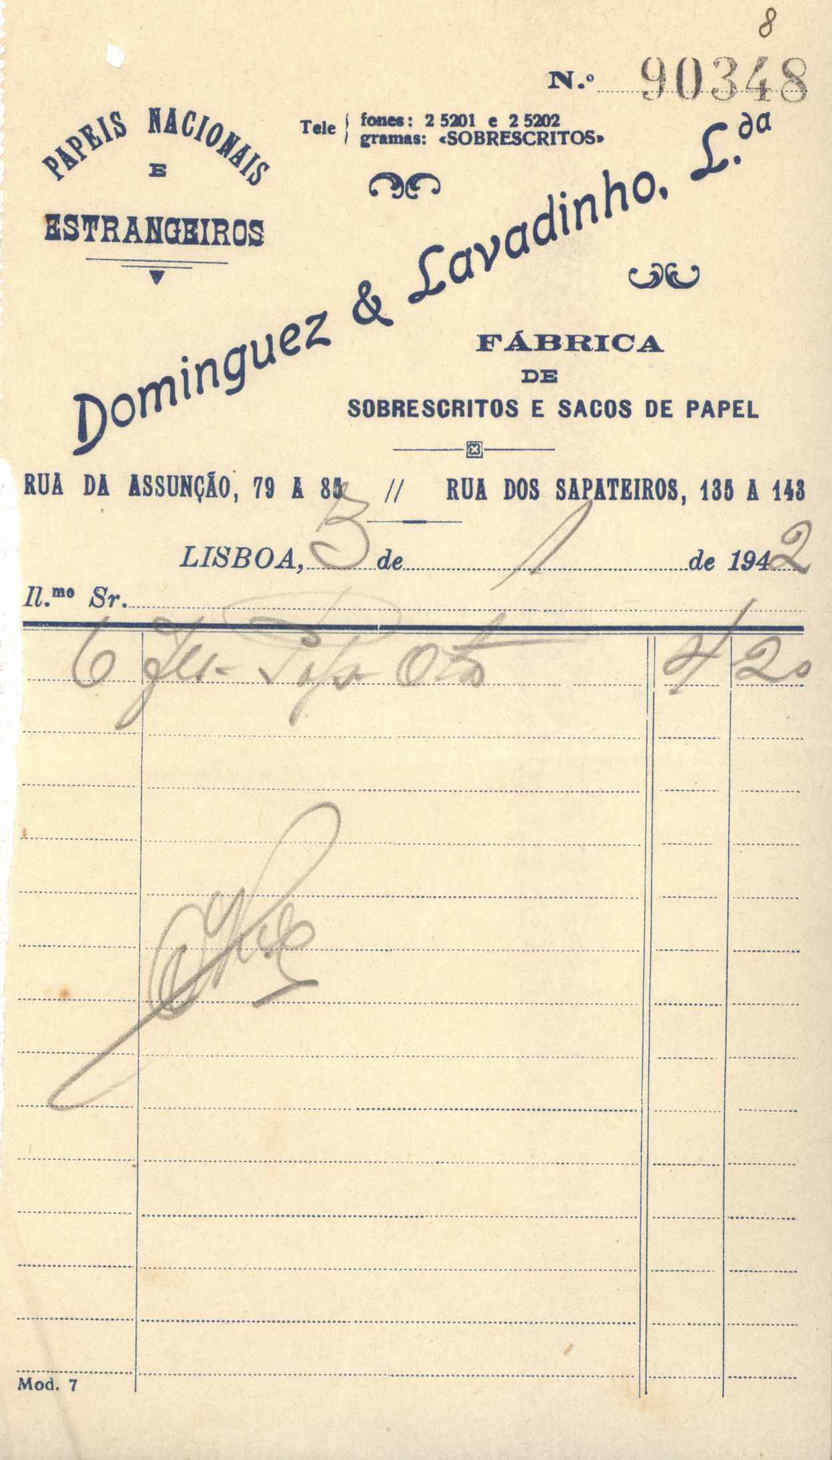 8
N.º 90348
PAPEIS NACIONAIS
E
ESTRANGEIROS
Tele fones: 2 5201 e 2 5202
gramas: «SOBRESCRITOS»
Dominguez & Lavadinho, L.da
FÁBRICA
DE
SOBRESCRITOS E SACOS DE PAPEL
RUA DA ASSUNÇÃO, 79 A 85 // RUA DOS SAPATEIROS, 135 A 143
LISBOA, 5 de 1 de 1942
Il.mo Sr.
6 4 20
Mod. 7